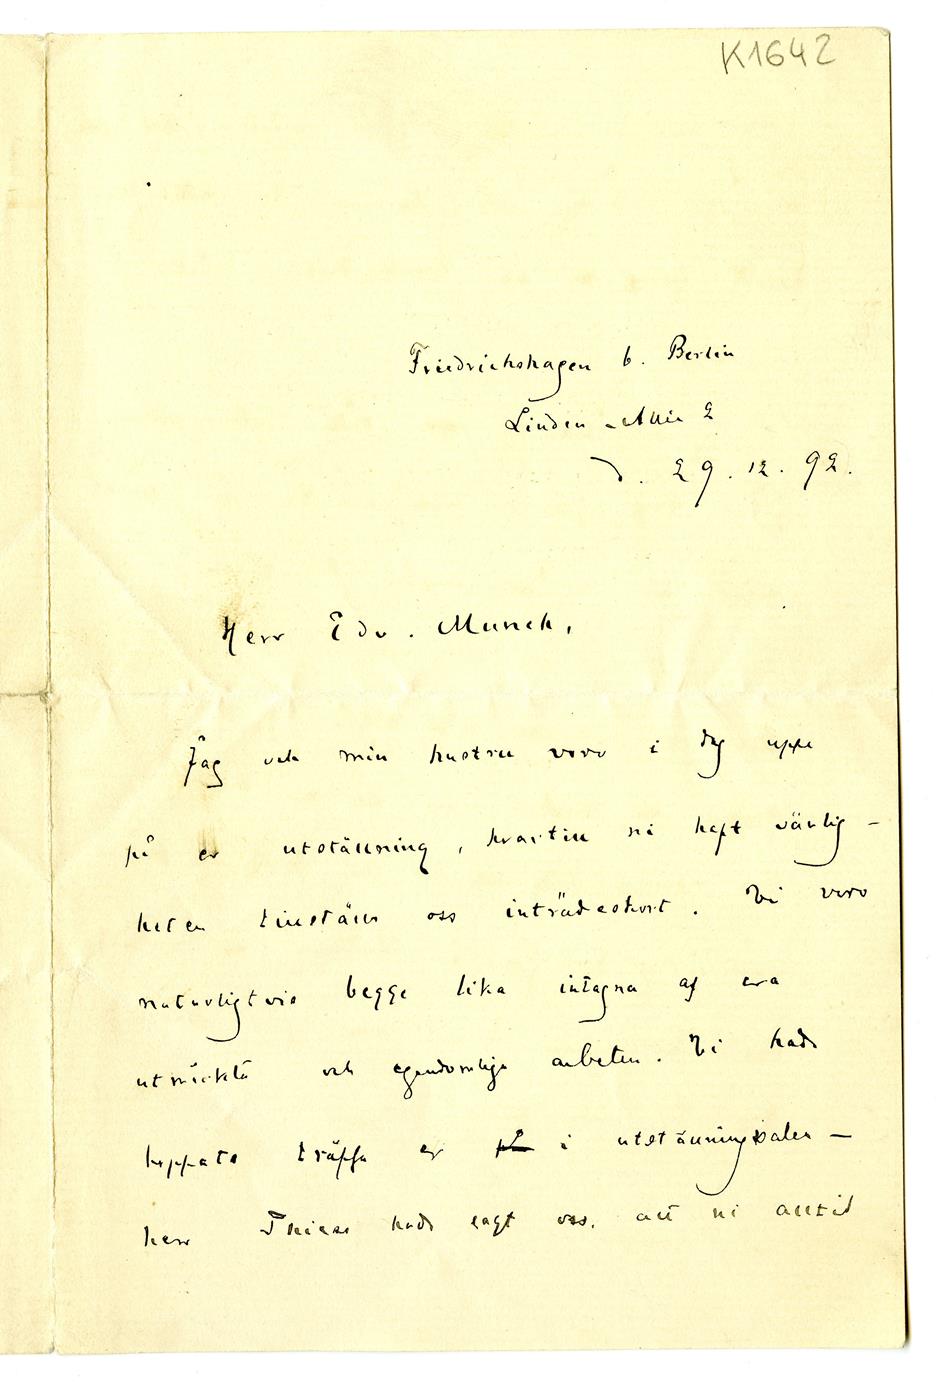 K1642
Friedrichshagen b. Berlin
Linden-Allée 2
d. 29.12.92.
Herr Edv. Munch,
Jag och min hustru voro i dag uppe
på er utställning, hvartill ni haft vänlig-
heten tillställa oss inträdeskort. Vi voro
naturligtvis begge lika intagna af era
utmärkta och egendomliga arbeten. Vi hade
hoppats träffa er på i utställningssalen —
herr hade sagt oss, att ni alltid